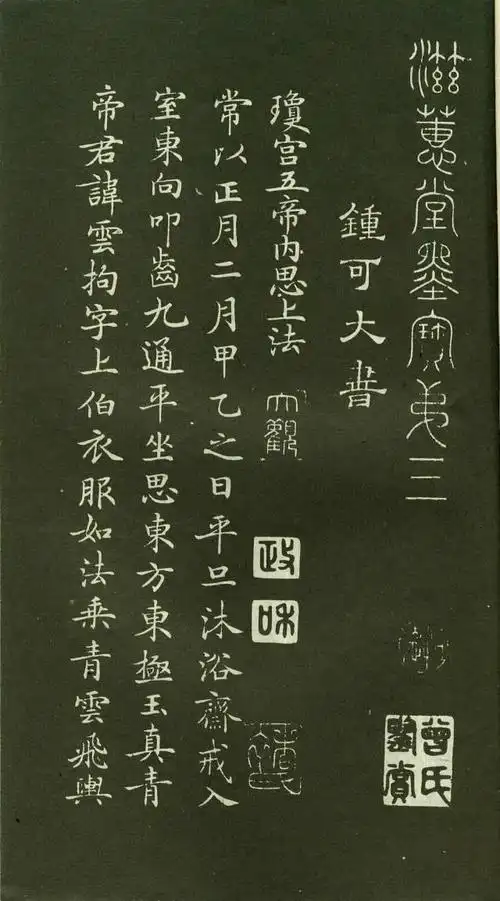 滋蕙堂墨寶弟三
鍾可大書
瓊宮五帝內思上法
大觀
政
和
曾氏
鑒賞
常以正月二月甲乙之日平旦沐浴齋戒入
室東向叩齒九通平坐思東方東極玉真青
帝君諱雲拘字上伯衣服如法乘青雲飛輿